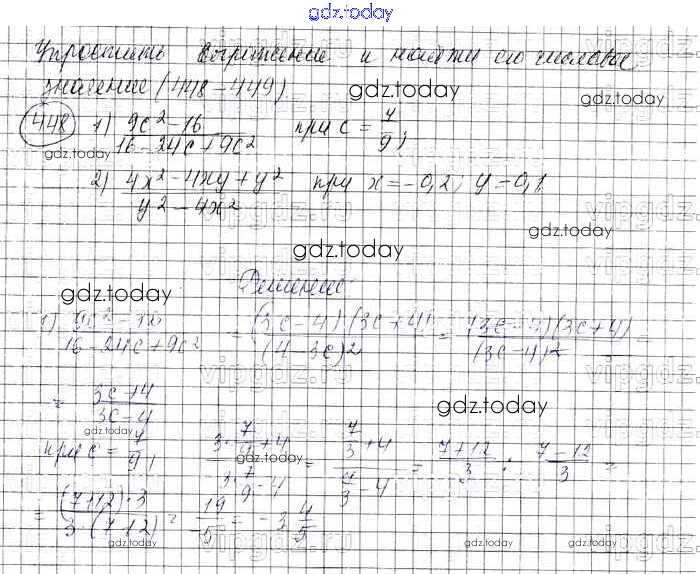 gdz.today
Упростить выражение и найти его числовое
значение (448-449).
gdz.today gdz.today
448 1) 9c² - 16 / 16 - 24c + 9c² при c = 7/9;
gdz.today
2) 4x² - 4xy + y² / y² - 4x² при x = -0,2; y = 0,1.
vipgdz.ru
gdz.today
gdz.today
Решение:
gdz.today
1) 9c² - 16 / 16 - 24c + 9c² = (3c - 4)(3c + 4) / (4 - 3c)² = (3c - 4)(3c + 4) / (3c - 4)² =
vipgdz.ru
= 3c + 4 / 3c - 4
gdz.today
gdz.today
при c = 7/9, 3 · 7/9 + 4 / 3 · 7/9 - 4 = 7/3 + 4 / 7/3 - 4 = 7 + 12 / 3 : 7 - 12 / 3 =
gdz.today
= (7 + 12) · 3 / 3 · (7 - 12) = 19 / -5 = -3 4/5
vipgdz.ru
gdz.today gdz.today gdz.today